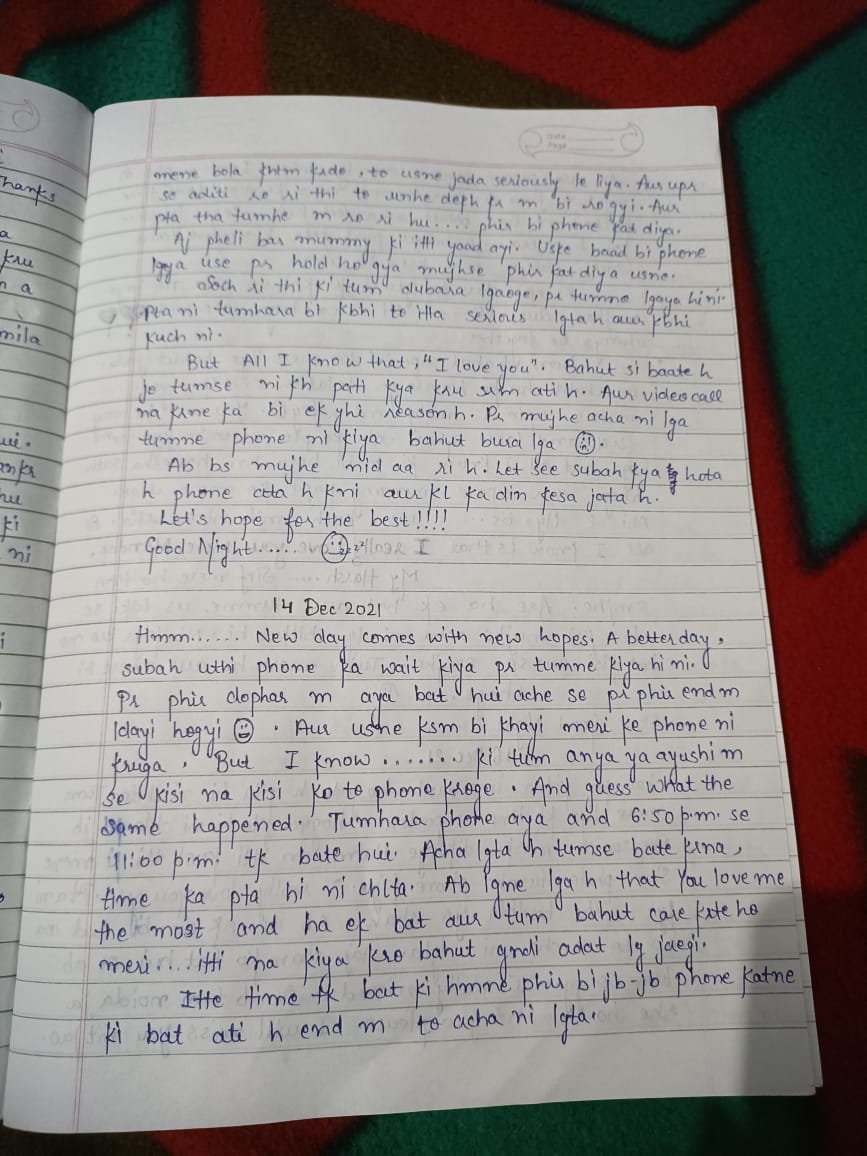 Date
Page
mene bola khtm krdo, to usne jada seriously le liya. Aur upr
se aditi ro ri thi to unhe dekh kr m bi ro gyi. Aur
pta tha tumhe m ro ri hu.... phir bi phone kat diya.
Aj pheli bar mummy ki itti yaad ayi. Uske baad bi phone
lgya use pr hold ho gya mujhse phir kat diya usne.
soch ri thi ki tum dubara lgaoge, pr tumne lgaya hi ni.
Pta ni tumhara bi kbhi to itta serious lgta h aur kbhi
kuch ni.
But All I know that, "I love you". Bahut si baate h
jo tumse ni kh pati kya kru srm ati h. Aur video call
na krne ka bi ek yhi reason h. Pr mujhe acha ni lga
tumne phone ni kiya bahut bura lga
Ab bs mujhe nid aa ri h. Let see subah kya hota
h phone ata h kni aur kl ka din kesa jata h.
Let's hope for the best!!!!
Good Night.....
14 Dec 2021
Hmm...... New day comes with new hopes. A better day,
subah uthi phone ka wait kiya pr tumne kiya hi ni.
Pr phir dophar m aya bat hui ache se pr phir end m
ldayi hogyi. Aur usne ksm bi khayi meri ke phone ni
kruga. But I know ....... ki tum anya ya ayushi m
se kisi na kisi ko to phone kroge. And guess what the
same happened. Tumhara phone aya and 6:50 p.m. se
11:00 p.m. tk bate hui. Acha lgta h tumse bate krna,
time ka pta hi ni chlta. Ab lgne lga h that You love me
the most and ha ek bat aur tum bahut care krte ho
meri.... itti na kiya kro bahut gndi adat lg jaegi.
Itte time tk bat ki hmne phir bi jb-jb phone katne
ki bat ati h end m to acha ni lgta.
hanks
a
kru
n a
mila
anks
ki
ni